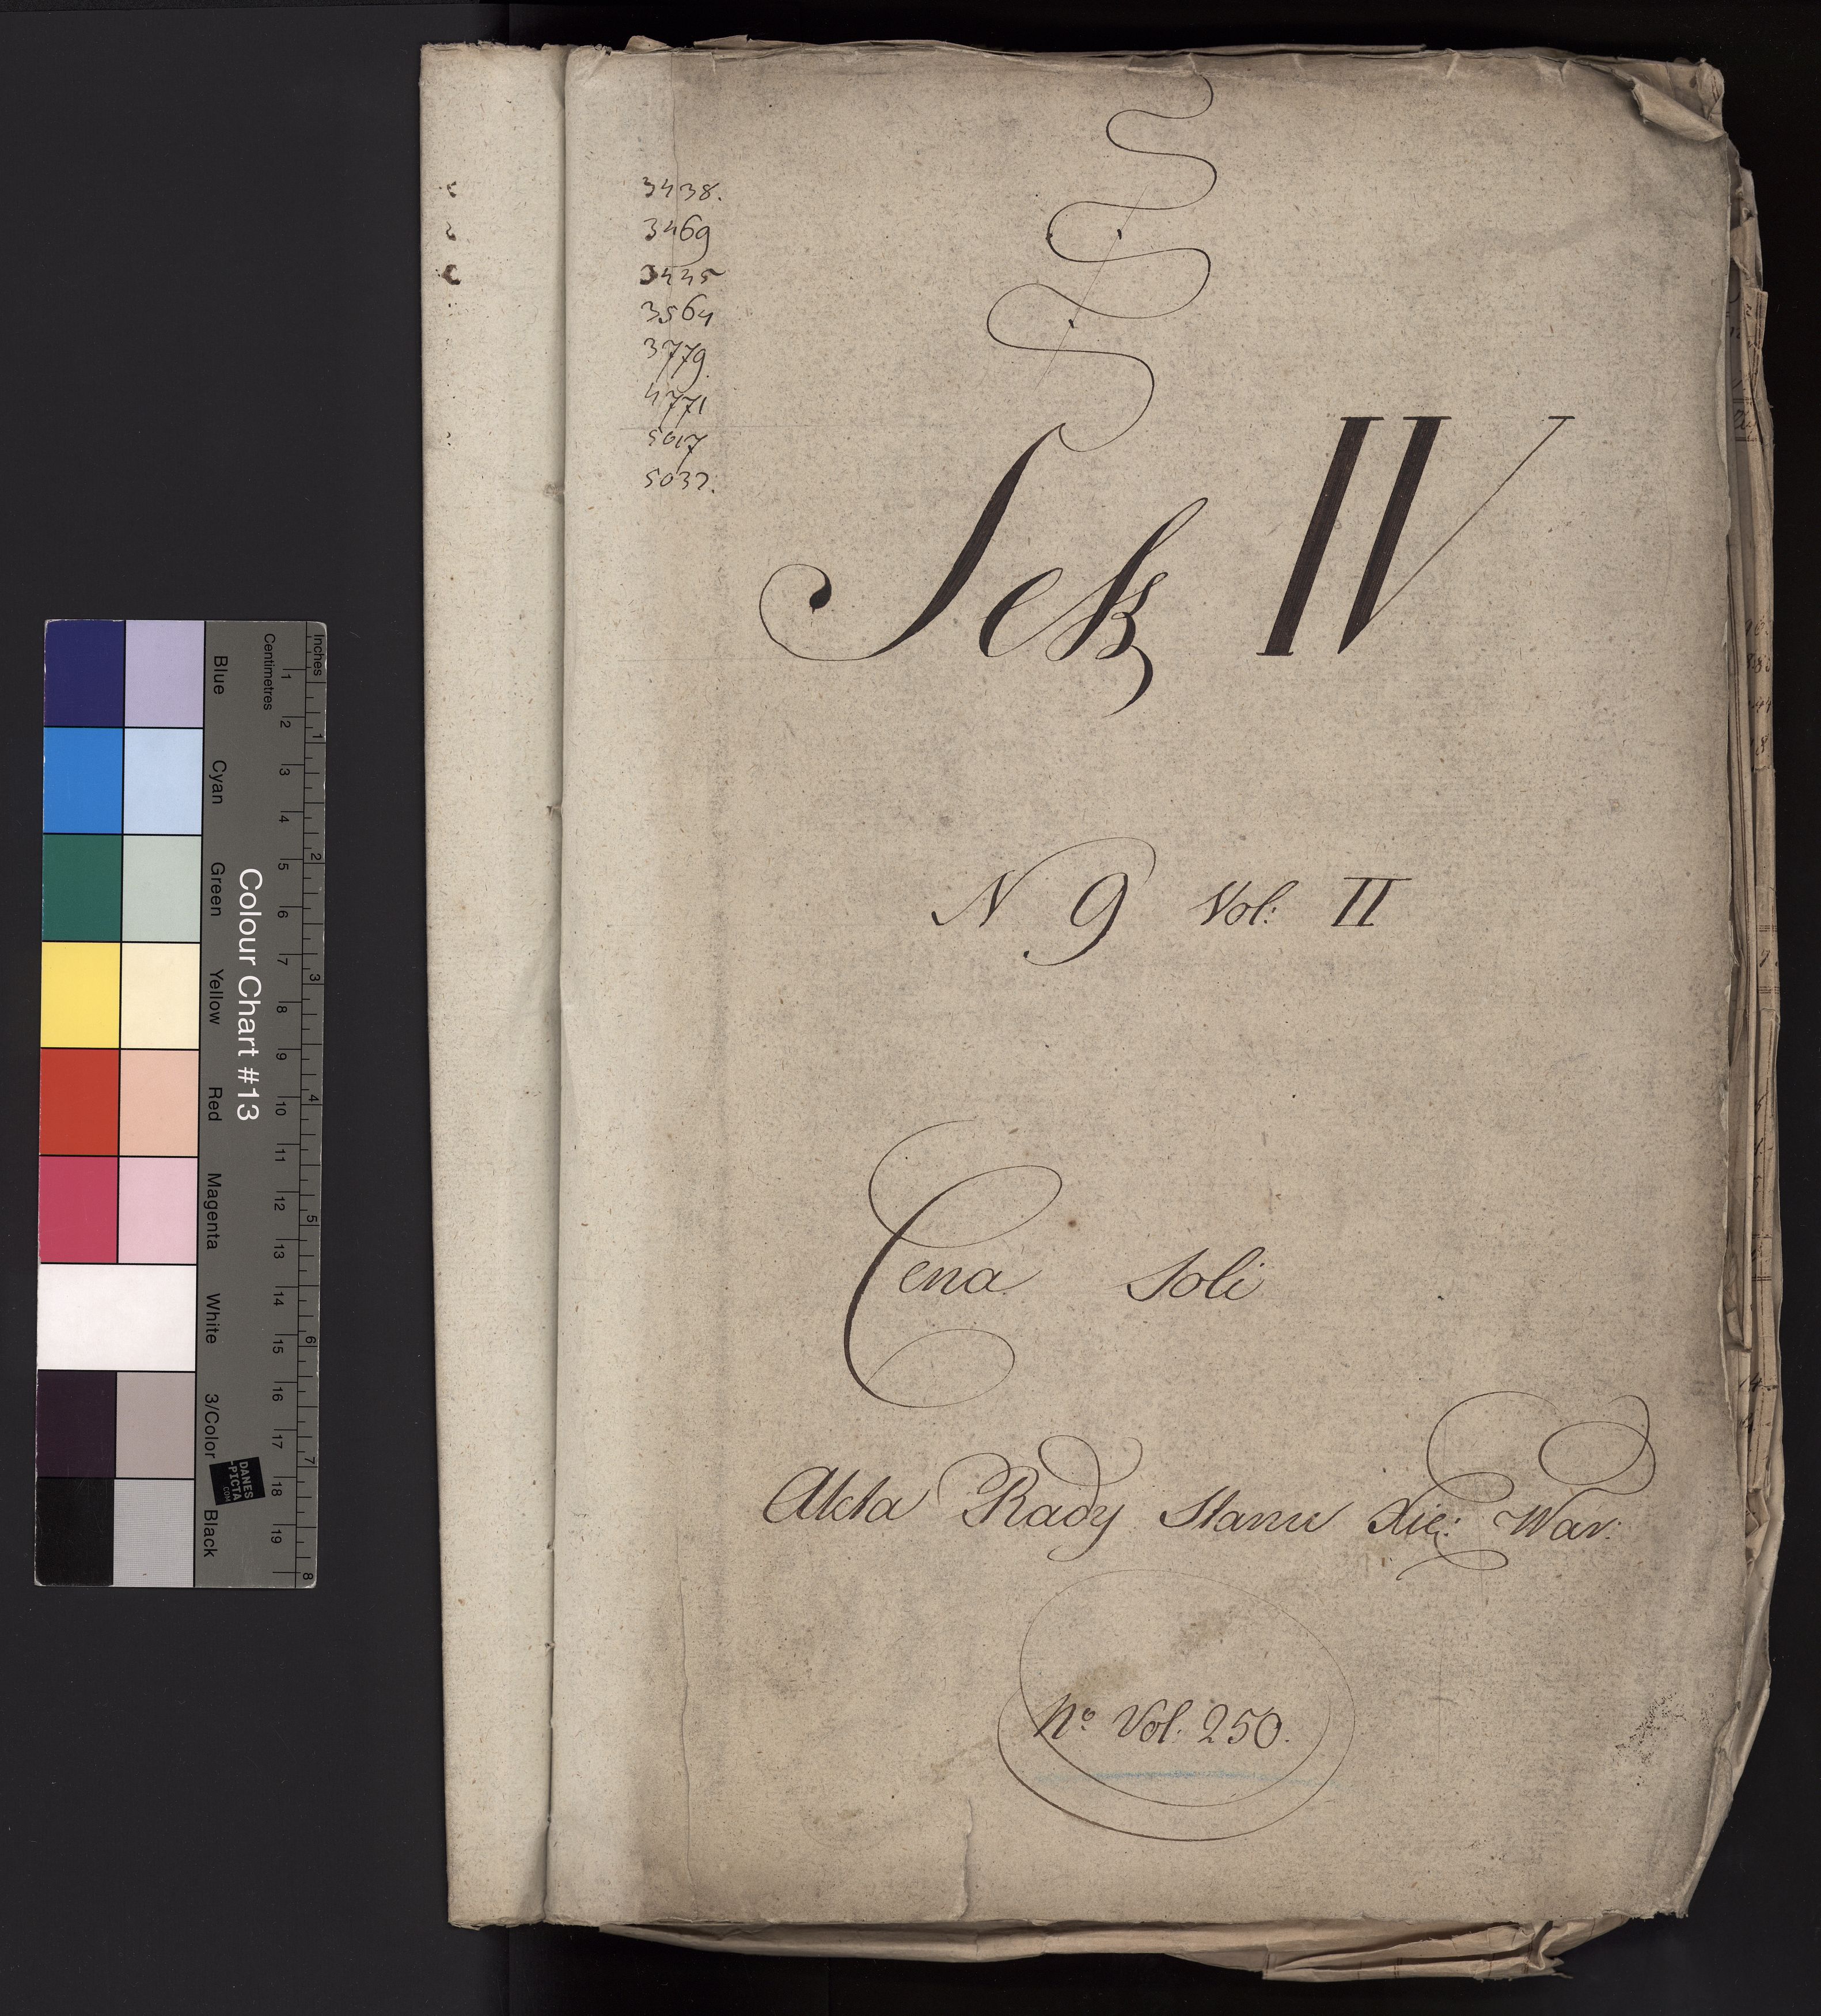 3438.
3469
3445
3564
3779.
4771
5017
5032.
Sek IV
N 9 Vol: II
Cena Soli
Akta Rady Stanu Xię: War:
No Vol. 250.
Inches
Centimetres
1 2 3 4 5 6 7 8 9 10 11 12 13 14 15 16 17 18 19
1 2 3 4 5 6 7 8
Colour Chart #13
Blue Cyan Green Yellow Red Magenta White 3/Color Black
DANES
-PICTA
.COM